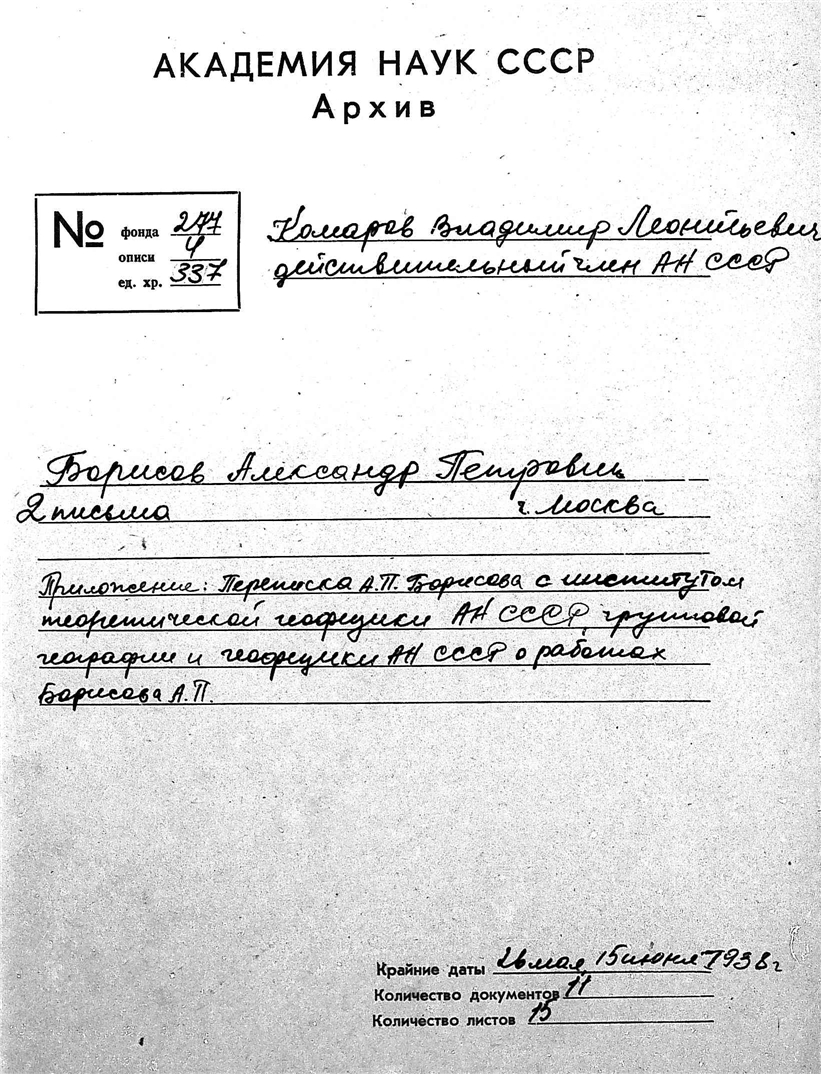 АКАДЕМИЯ НАУК СССР
Архив
№ фонда 277
описи 4
ед. хр. 337
Комаров Владимир Леонтьевич
действительный член АН СССР
Борисов Александр Петрович
2 письма г. Москва
Приложение: Переписка А.П. Борисова с институтом
теоретической геофизики АН СССР группой
географии и геофизики АН СССР о работах
Борисова А.П.
Крайние даты 26 мая, 15 июня 1938 г
Количество документов 11
Количество листов 15